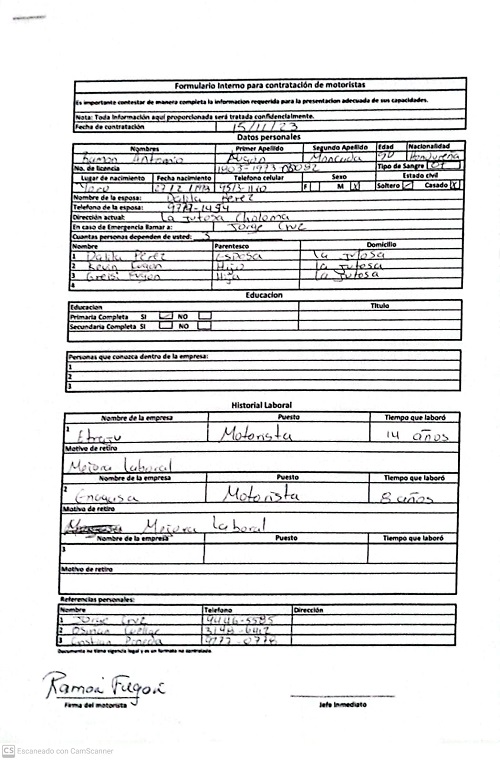 Formulario Interno para contratación de motoristas
Es importante contestar de manera completa la informacion requerida para la presentacion adecuada de sus capacidades.
Nota: Toda información aquí proporcionada será tratada confidencialmente.
Fecha de contratación 15/11/23
Datos personales
Nombres Primer Apellido Segundo Apellido Edad Nacionalidad
Ramon Antonio Moncada Hondureña
No. de licencia 1803-1973- Tipo de Sangre O+
Lugar de nacimiento Fecha nacimiento Telefono celular Sexo Estado civil
Yoro 27/2/1973 9513-1110 F M X Soltero Casado X
Nombre de la esposa: Dalila Perez
Telefono de la esposa: 9777-1494
Dirección actual: La Jutosa Choloma
En caso de Emergencia llamar a: Jorge Cruz
Cuantas personas dependen de usted: 3
Nombre Parentesco Domicilio
1 Dalila Pérez Esposa La Jutosa
2 Kevin Hijo La Jutosa
3 Hija La Jutosa
4
Educacion
Educacion Titulo
Primaria Completa SI NO
Secundaria Completa SI NO
Personas que conozca dentro de la empresa:
1
2
3
Historial Laboral
Nombre de la empresa Puesto Tiempo que laboró
1 Motorista 14 años
Motivo de retiro
Mejora Laboral
Nombre de la empresa Puesto Tiempo que laboró
2 Motorista 8 años
Motivo de retiro
Mejora Laboral
Nombre de la empresa Puesto Tiempo que laboró
3
Motivo de retiro
Referencias personales:
Nombre Telefono Dirección
1 Jorge Cruz 9446-5585
2 Osman
3 Pineda 9777-0778
Documento no tiene vigencia legal y es un formato no controlado
Ramon Fugon
Firma del motorista Jefe Inmediato
CS Escaneado con CamScanner